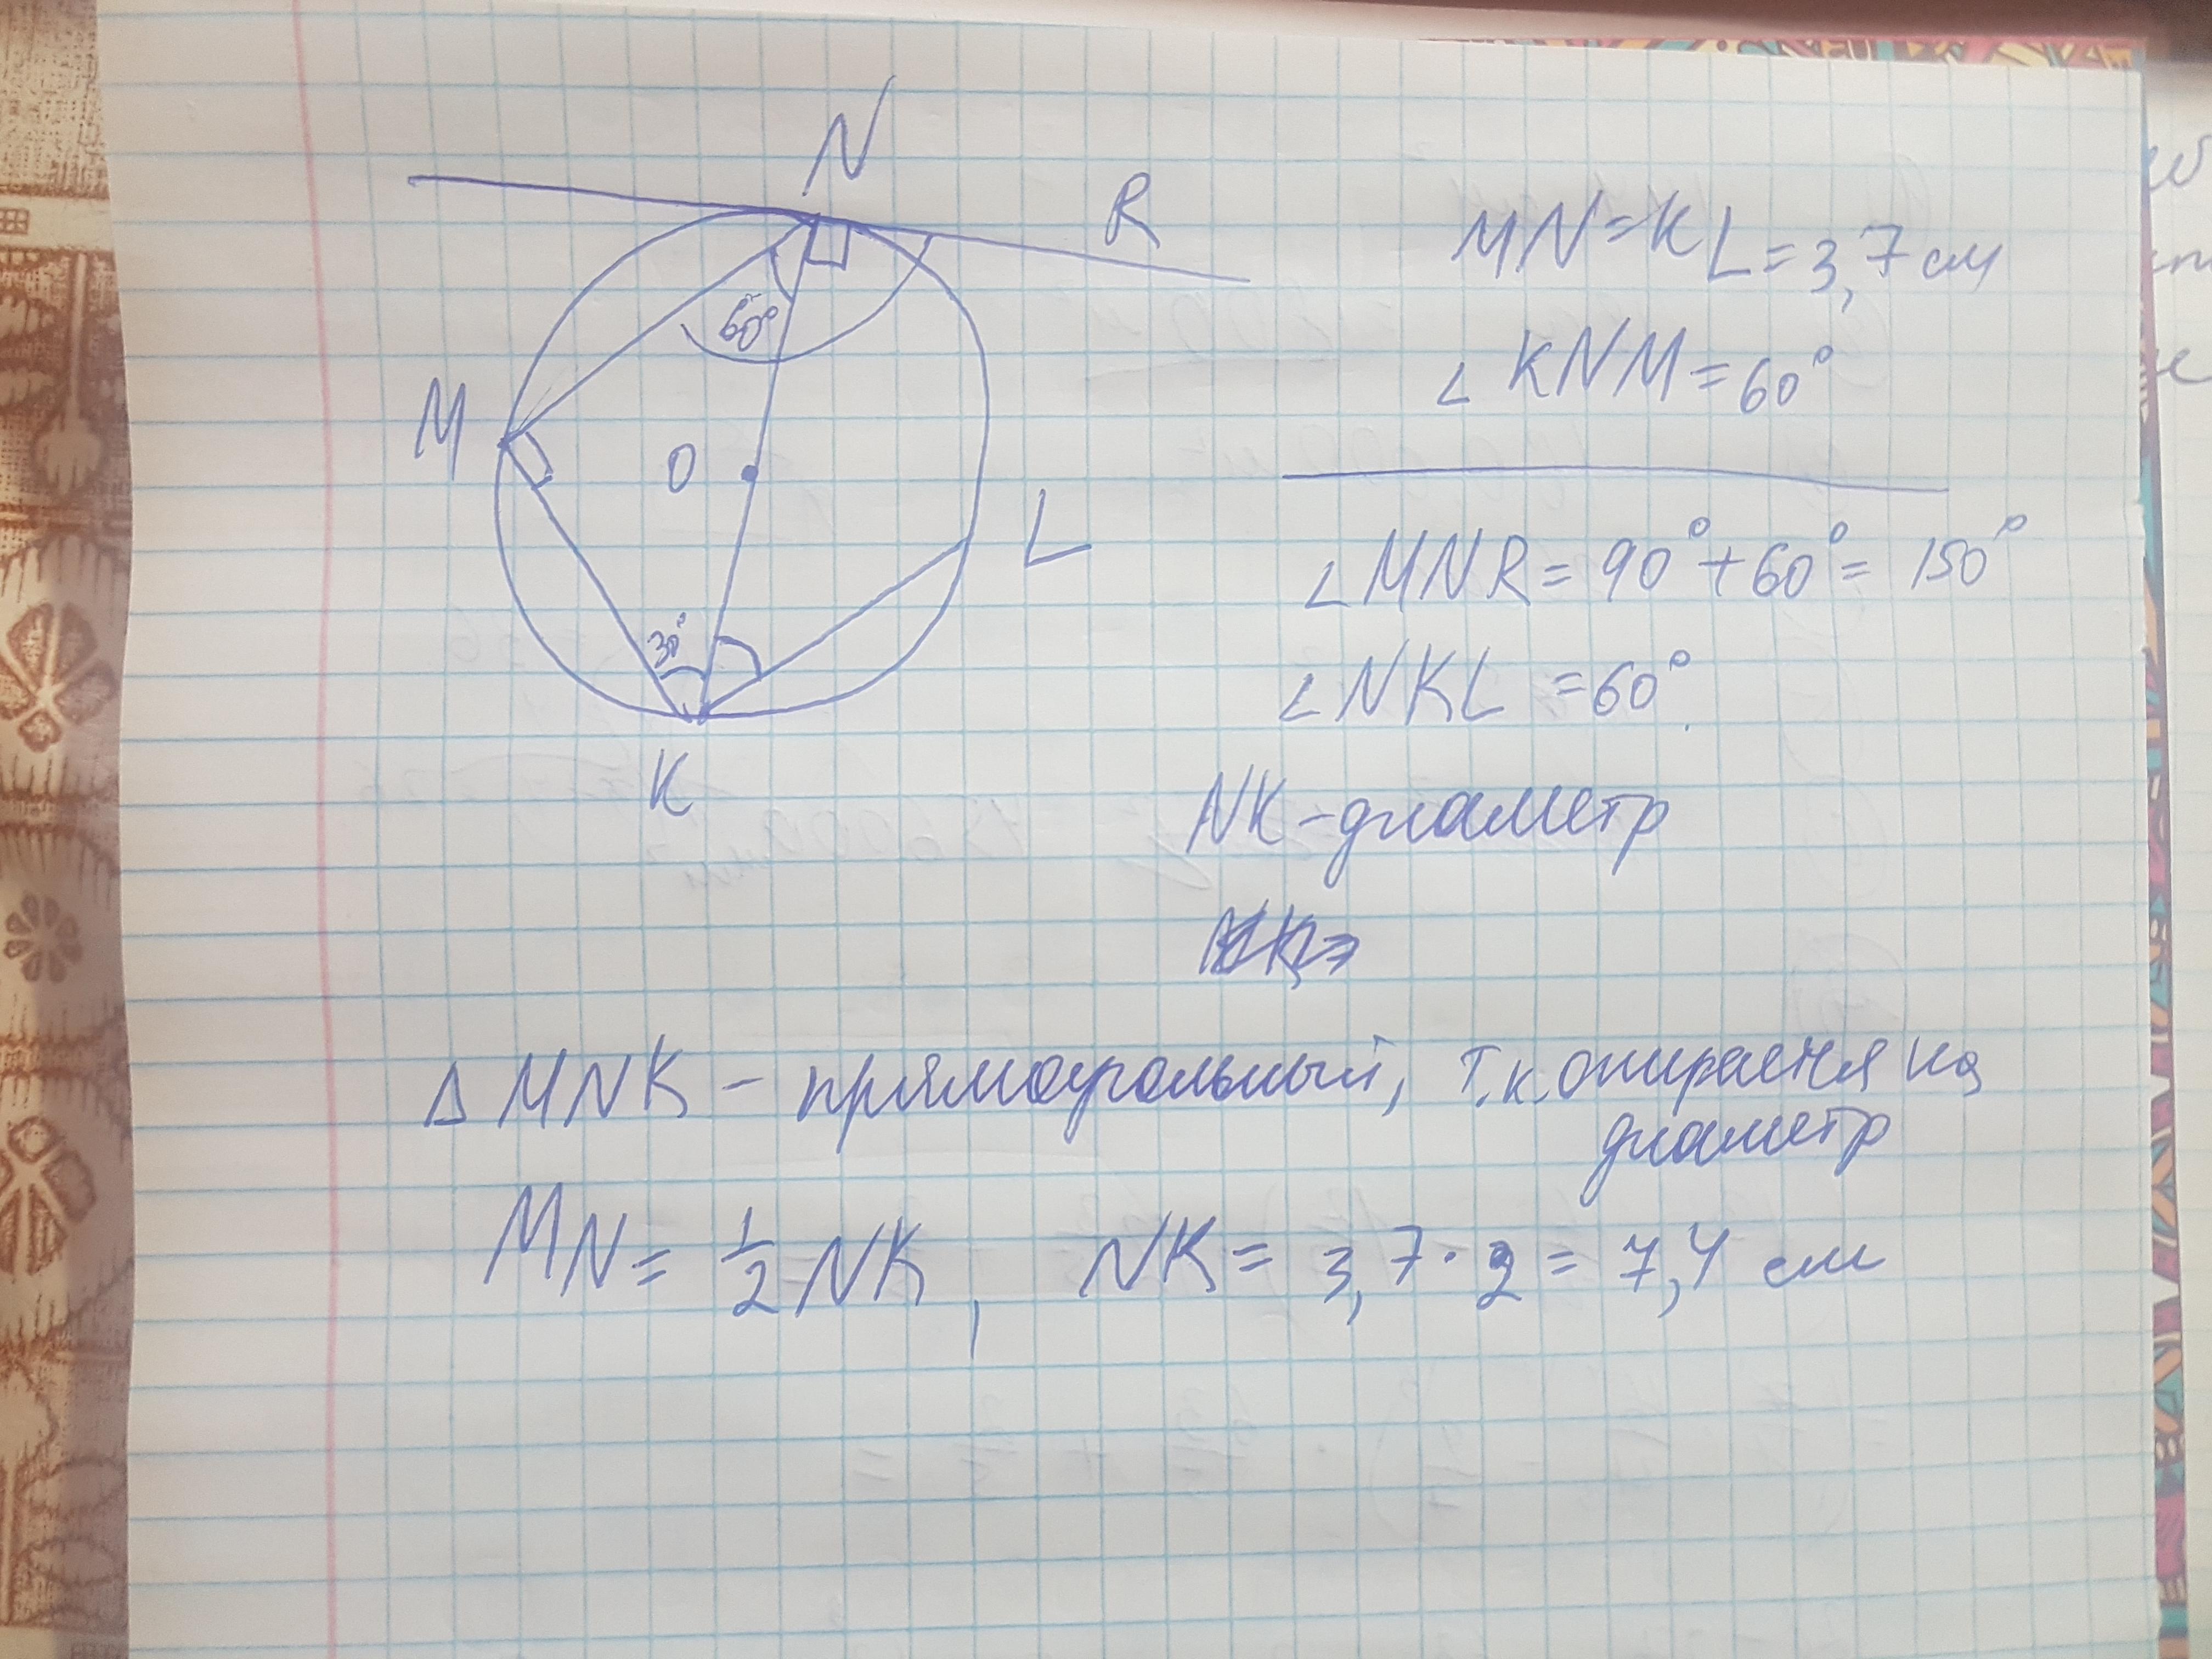 N
R
60°
M
O
L
30°
K
MN=KL=3,7 см
∠KNM=60°
∠MNR=90°+60°=150°
∠NKL=60°
NK-диаметр
Δ MNK - прямоугольный, т.к. опирается на
диаметр
MN=1/2 NK, NK=3,7·2=7,4 см